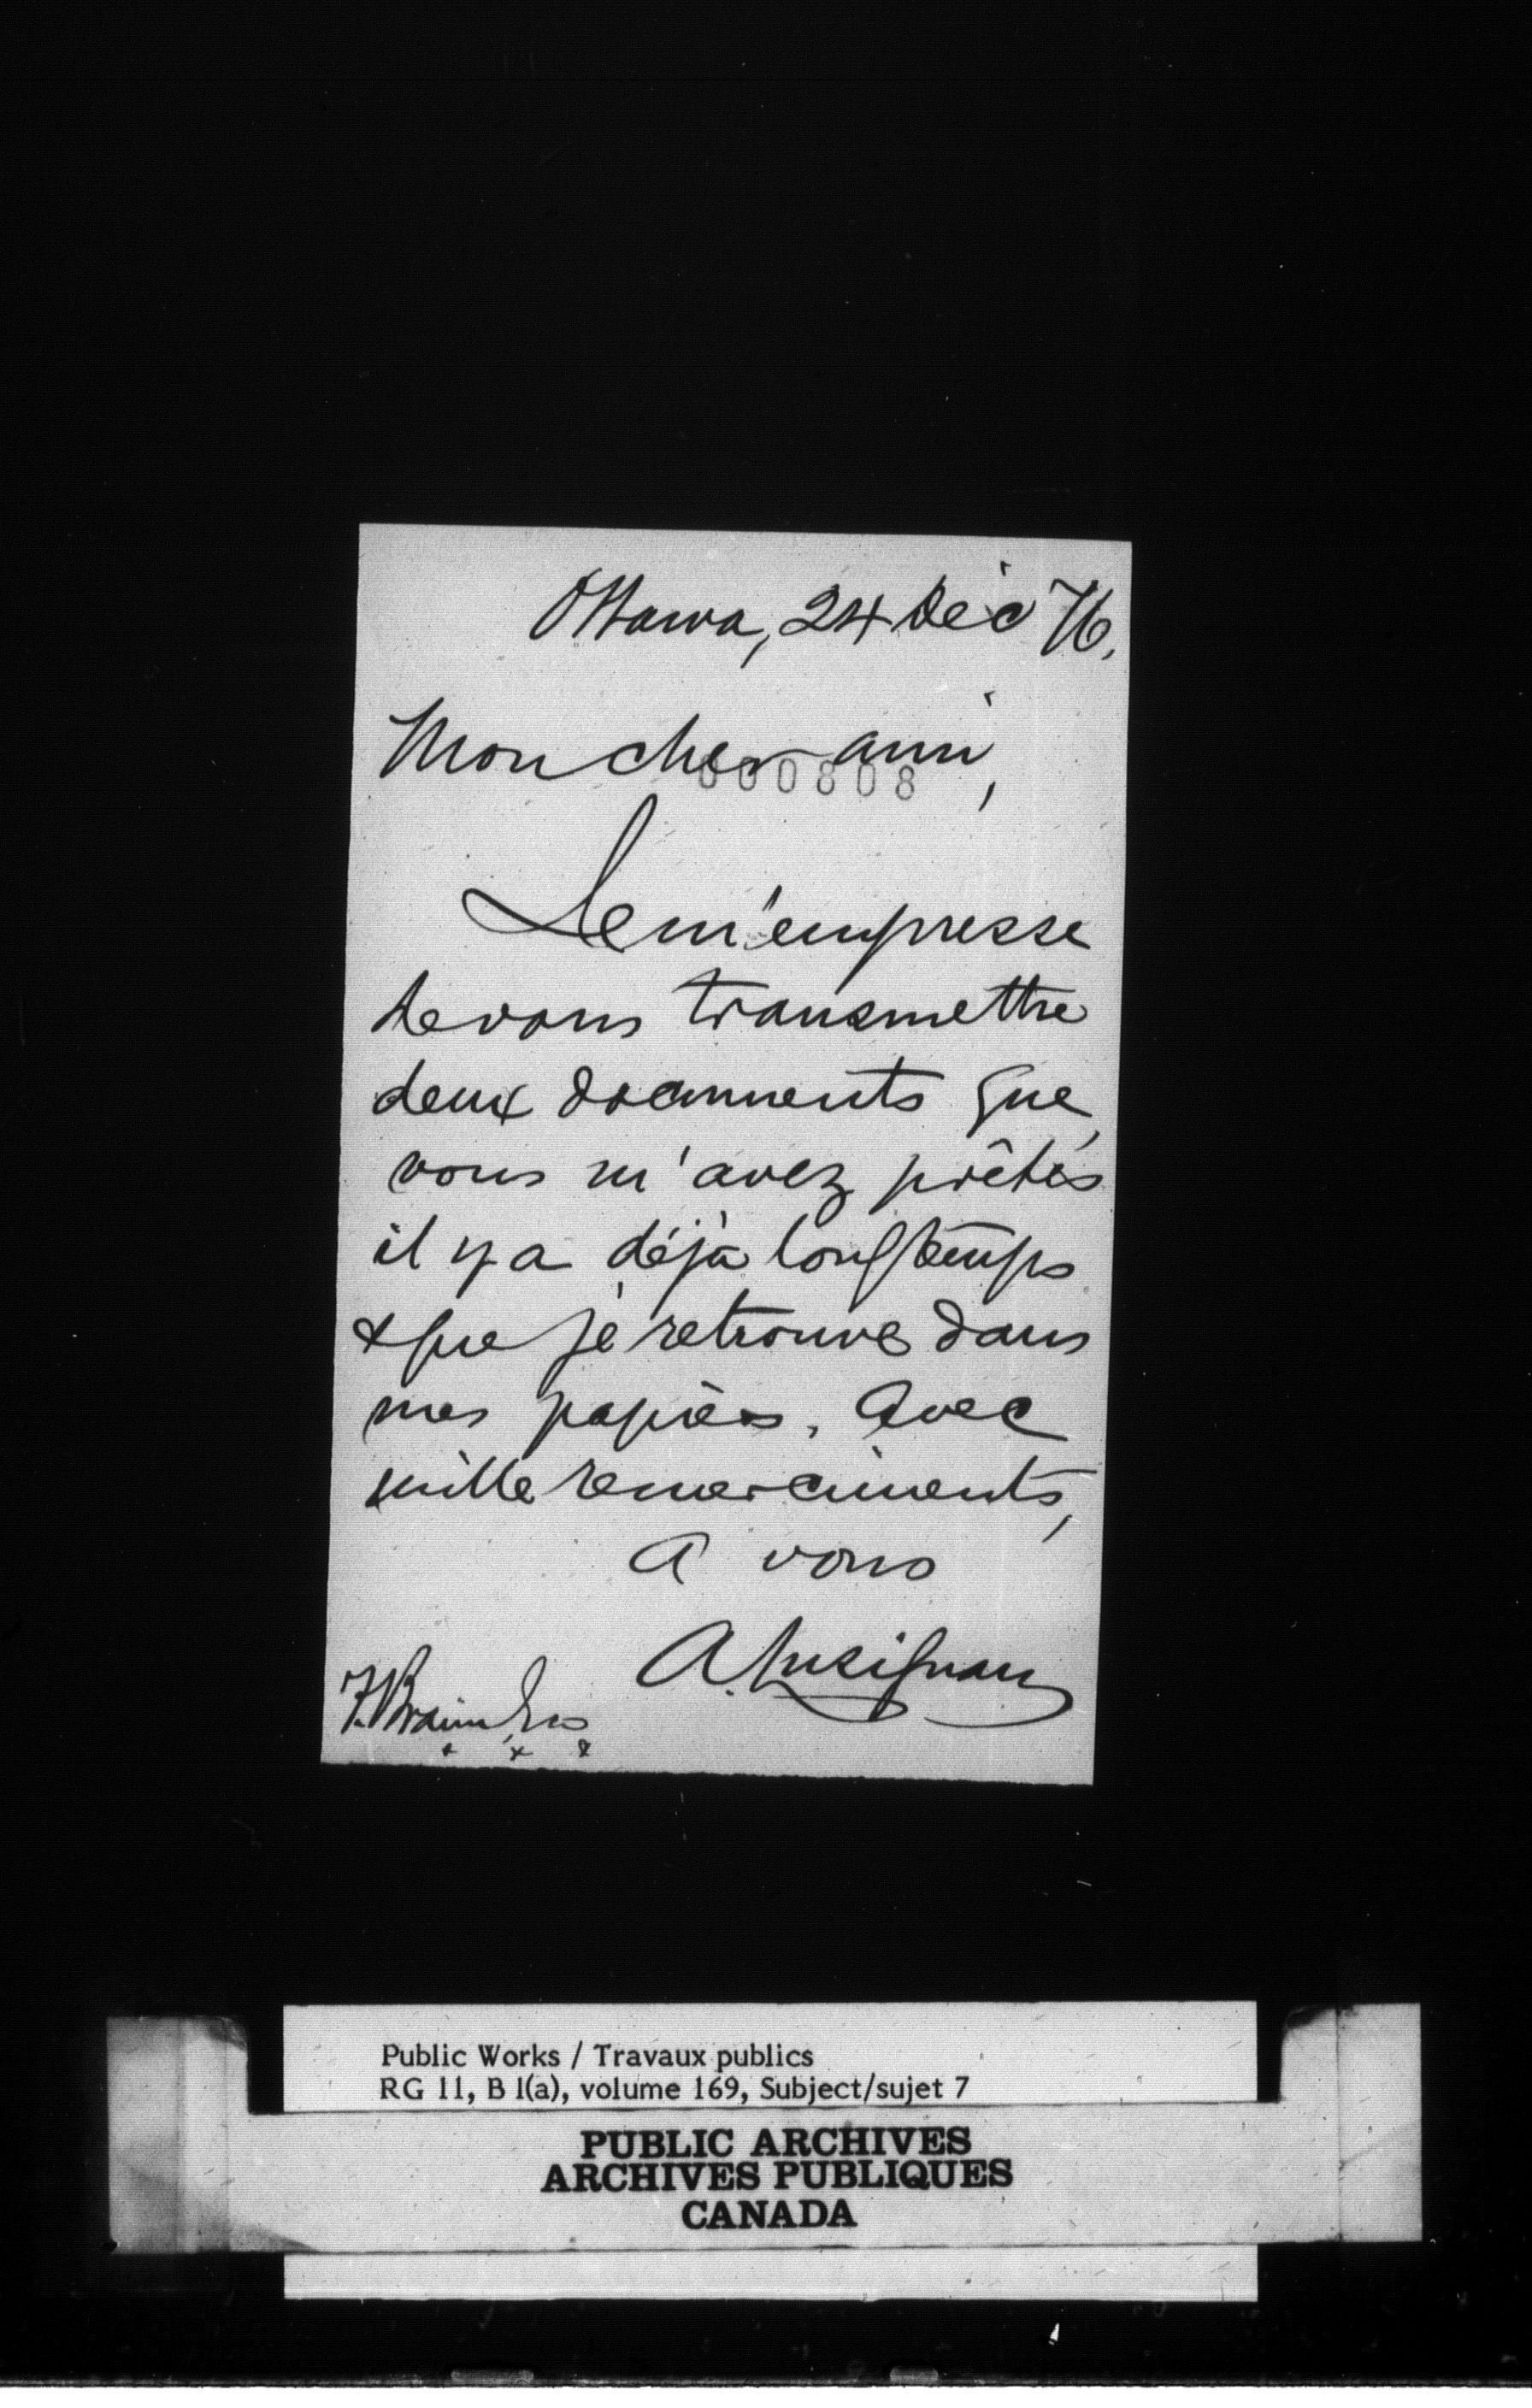 Ottawa, 24 Déc 76.
Mon cher ami,
000808
Je m'empresse
de vous transmettre
deux documents que
vous m'avez prêtés
il y a déjà longtemps
& que je retrouve dans
mes papiers. Avec
mille remerciments,
A vous
A. Lusignan
F. Braun, Esq
Public Works / Travaux publics
RG 11, B 1(a), volume 169, Subject/sujet 7
PUBLIC ARCHIVES
ARCHIVES PUBLIQUES
CANADA